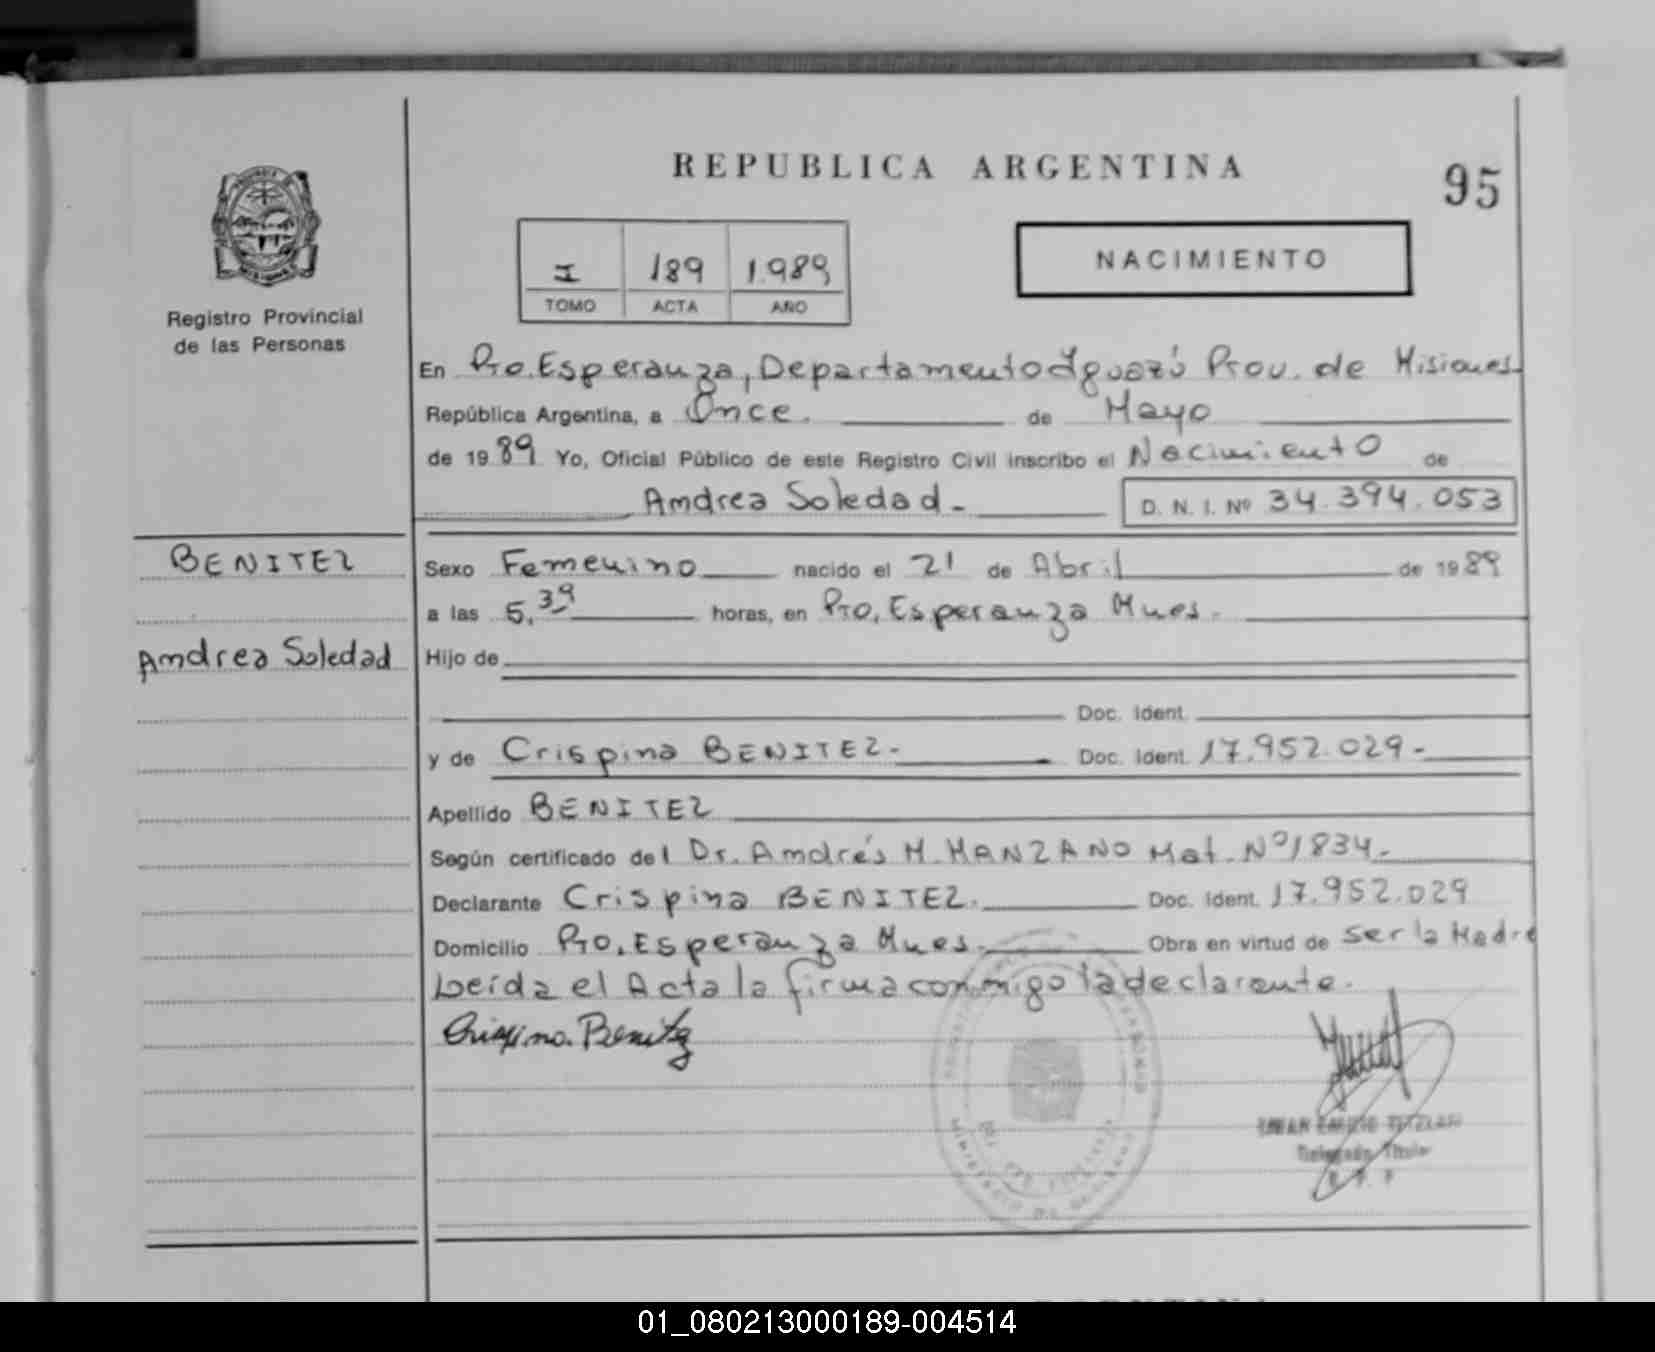 REPUBLICA ARGENTINA
95
I 189 1.989
TOMO ACTA AÑO
NACIMIENTO
Registro Provincial
de las Personas
En Pto. Esperanza, Departamento Iguazú Prov. de Misiones
República Argentina, a Once. de Mayo
de 1989 Yo, Oficial Público de este Registro Civil inscribo el Nacimiento de
Andrea Soledad - D. N. I. Nº 34.394.053
BENITEZ
Andrea Soledad
Sexo Femenino nacido el 21 de Abril de 1989
a las 5,39 horas, en Pto, Esperanza Mnes.
Hijo de
Doc. Ident.
y de Crispina BENITEZ.- Doc. Ident. 17.952.029-
Apellido BENITEZ
Según certificado del Dr. Andrés M. MANZANO Mat. Nº 1834.-
Declarante Crispina BENITEZ. Doc. Ident. 17.952.029
Domicilio Pto. Esperanza Mnes. Obra en virtud de ser la Madre
Leída el Acta la firma conmigo la declarante.
Crispina Benitez
Delegado Titular
01_080213000189-004514